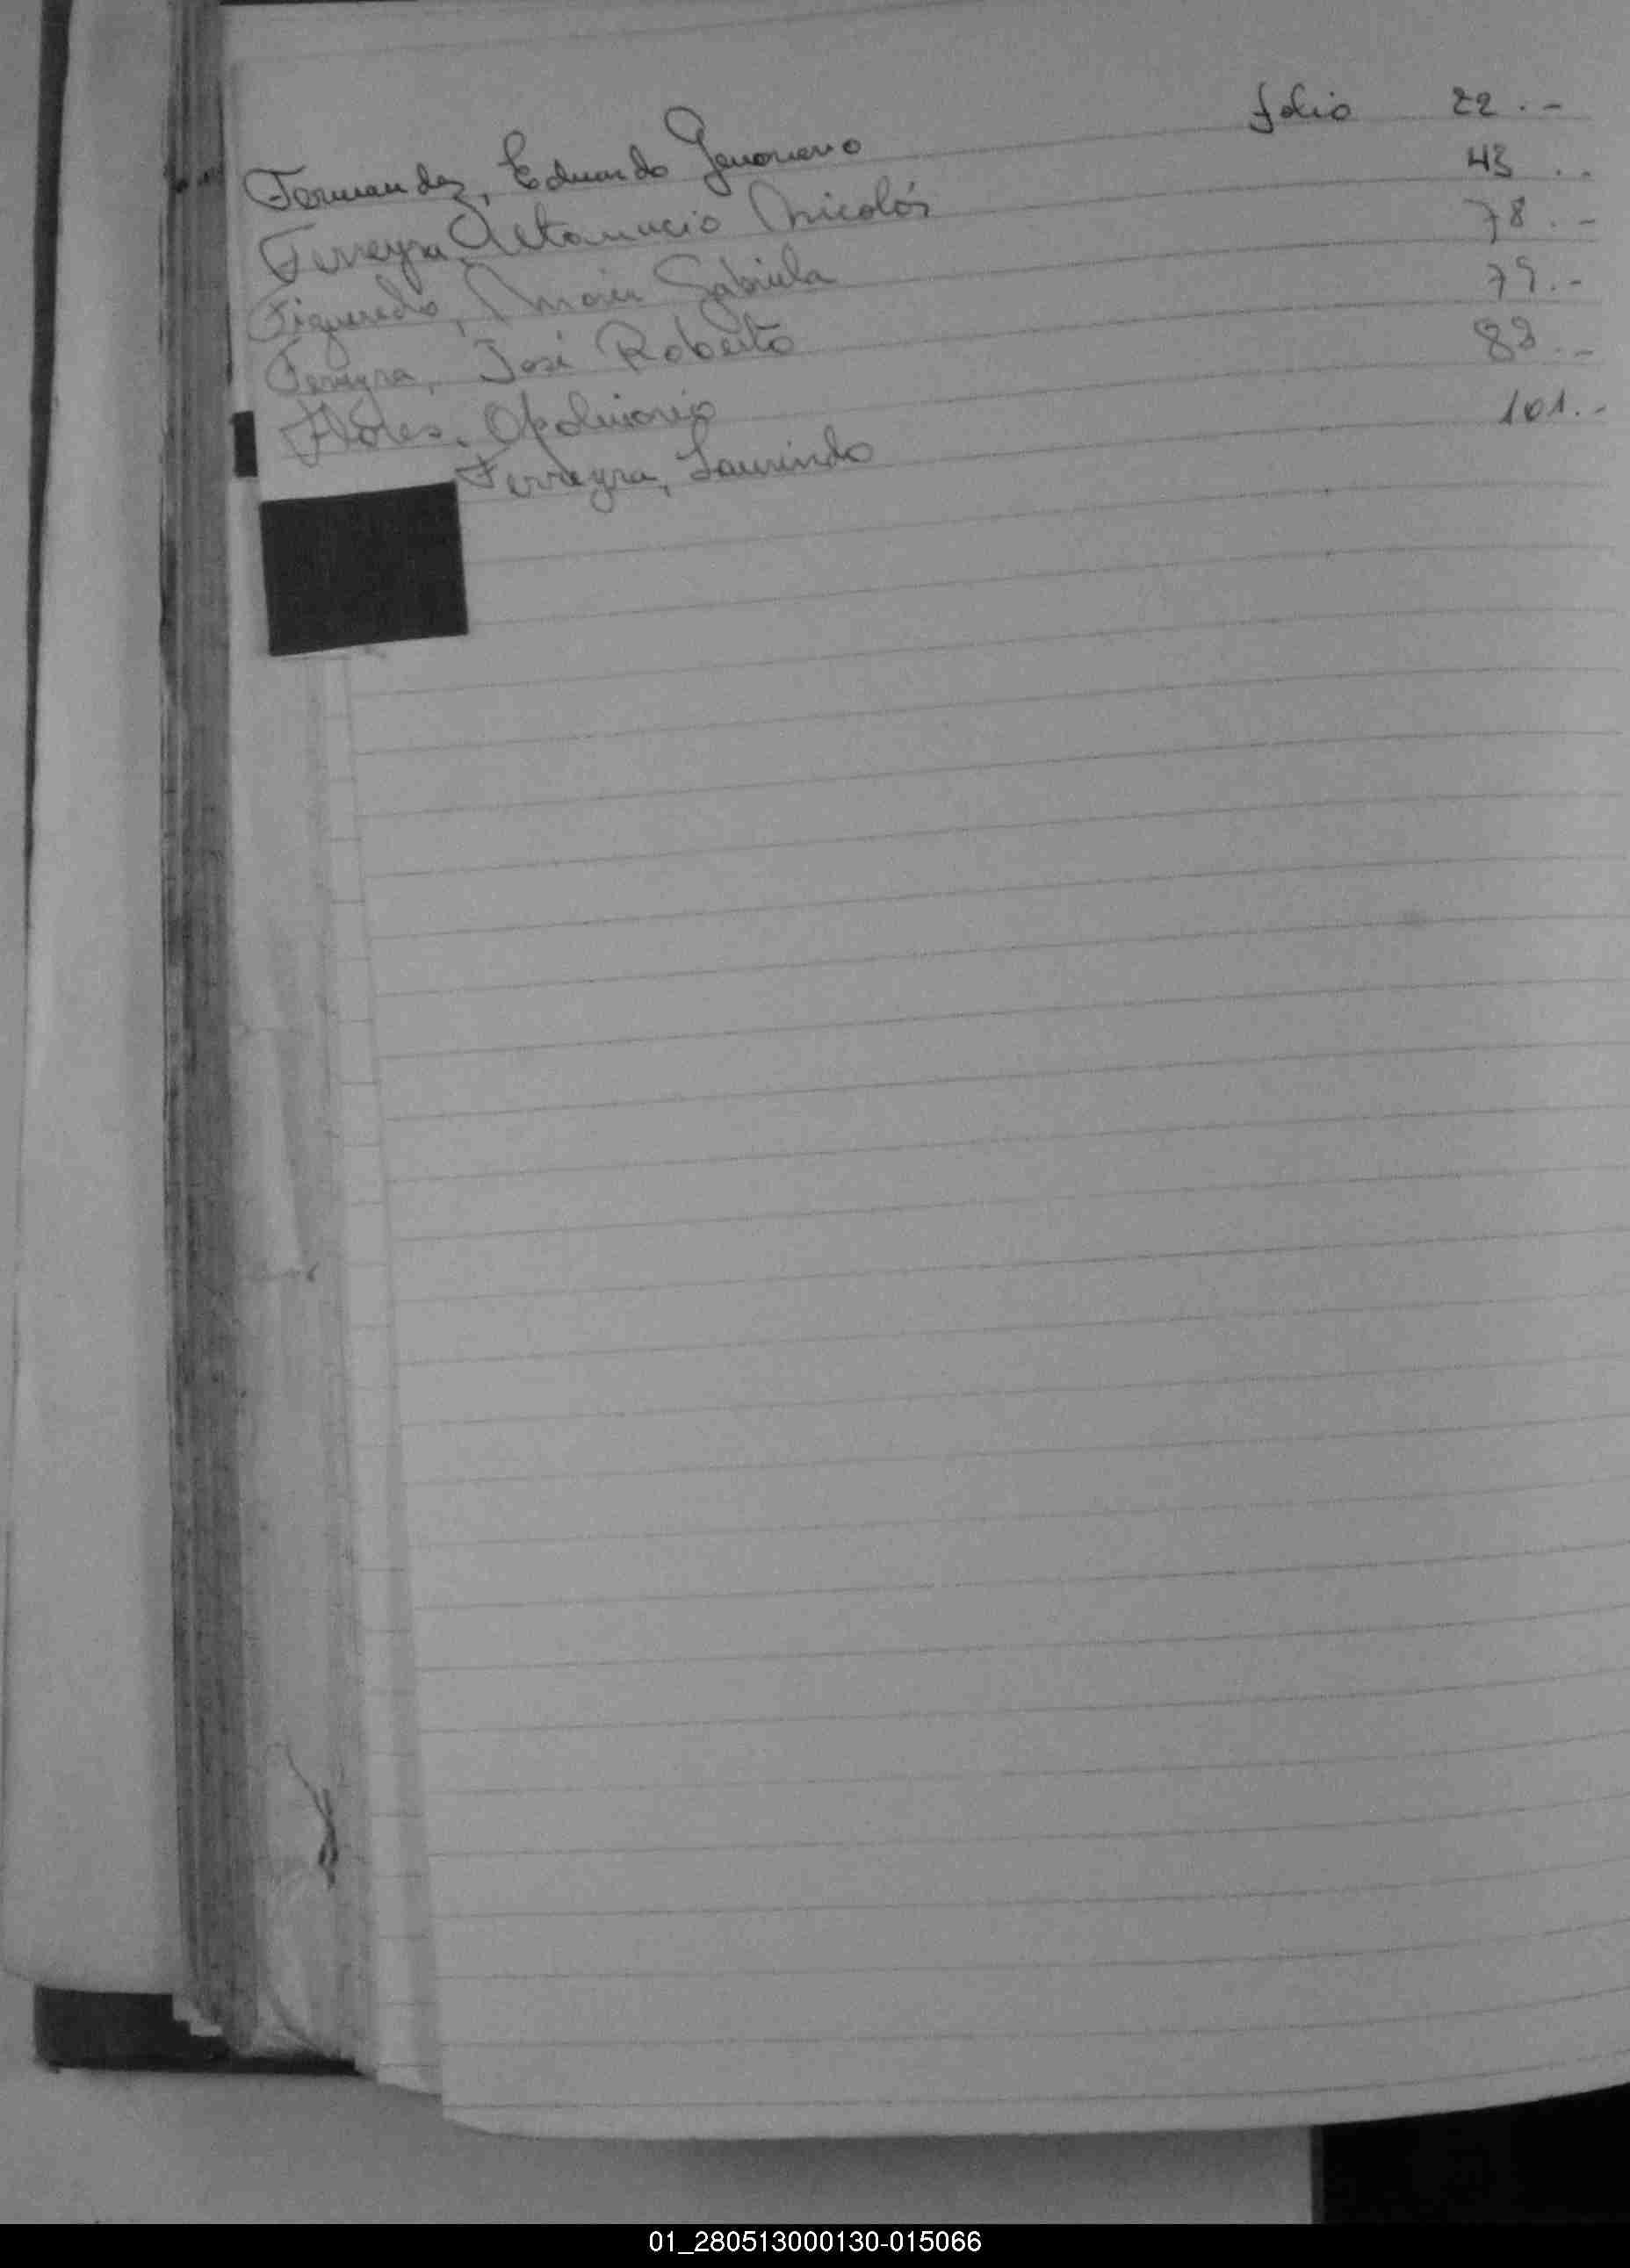 Fernandez, Eduardo Genoveno folio 22.-
Ferreyra, Nicolás 43..
Figueredo, Maria Gabriela 78.-
Ferreyra, José Roberto 79.-
Flores, Apolinario 88.-
Ferreyra, Laurindo 101.-
01_280513000130-015066